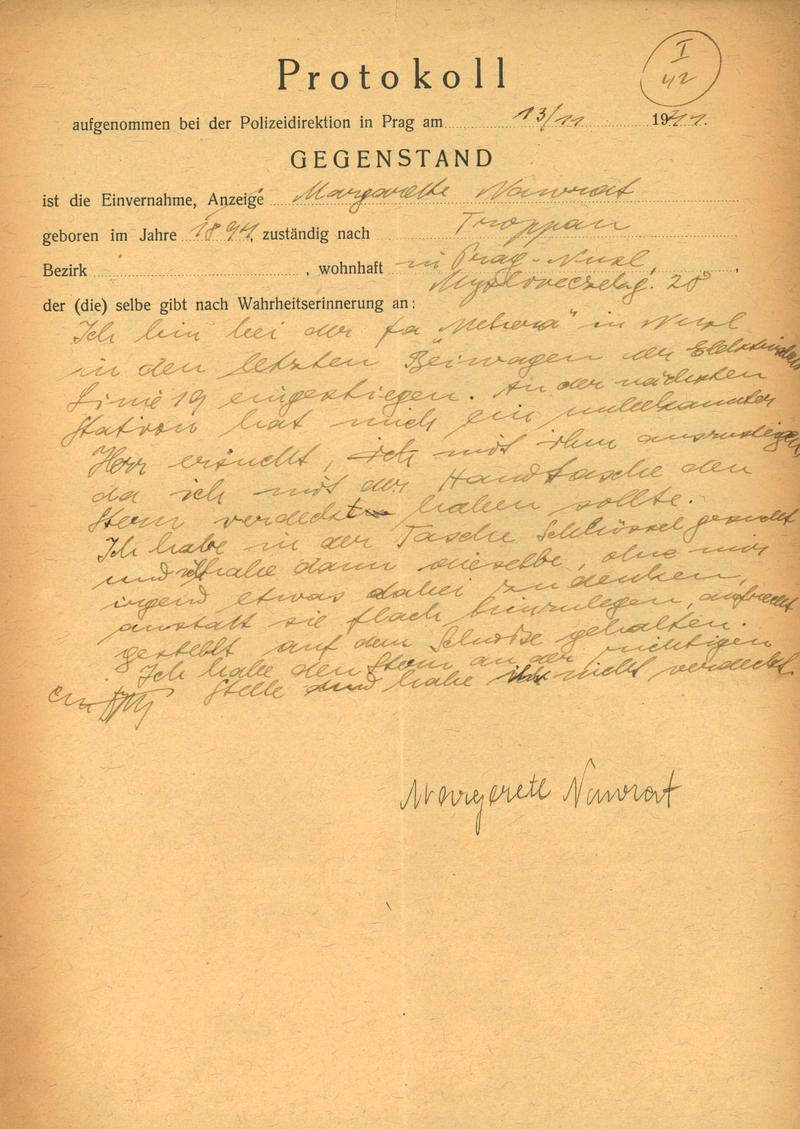 I
42
Protokoll
aufgenommen bei der Polizeidirektion in Prag am 13/11 1941.
GEGENSTAND
ist die Einvernahme, Anzeige Margarethe Nawrat
geboren im Jahre 1894, zuständig nach Troppau
Bezirk , wohnhaft in Prag - Nusl,
28
der (die) selbe gibt nach Wahrheitserinnerung an:
Ich bin bei der fa in Nusl
in den letzten Beiwagen der
Linie 19 eingestiegen. An der nächsten
Station hat mich ein unbekannter
Herr ersucht, ich mit ihm auszusteigen
da ich mit der Handtasche den
Stern verdeckt haben sollte.
Ich habe in der Tasche Schlüssel gesucht
und habe dann dieselbe, ohne mir
irgend etwas dabei zu denken,
anstatt sie flach hinzulegen, aufrecht
gestellt auf dem Schoise gehalten.
Ich habe den Stern an der richtigen
Stelle und habe ihn nicht verdeckt
Margarete Nawrat